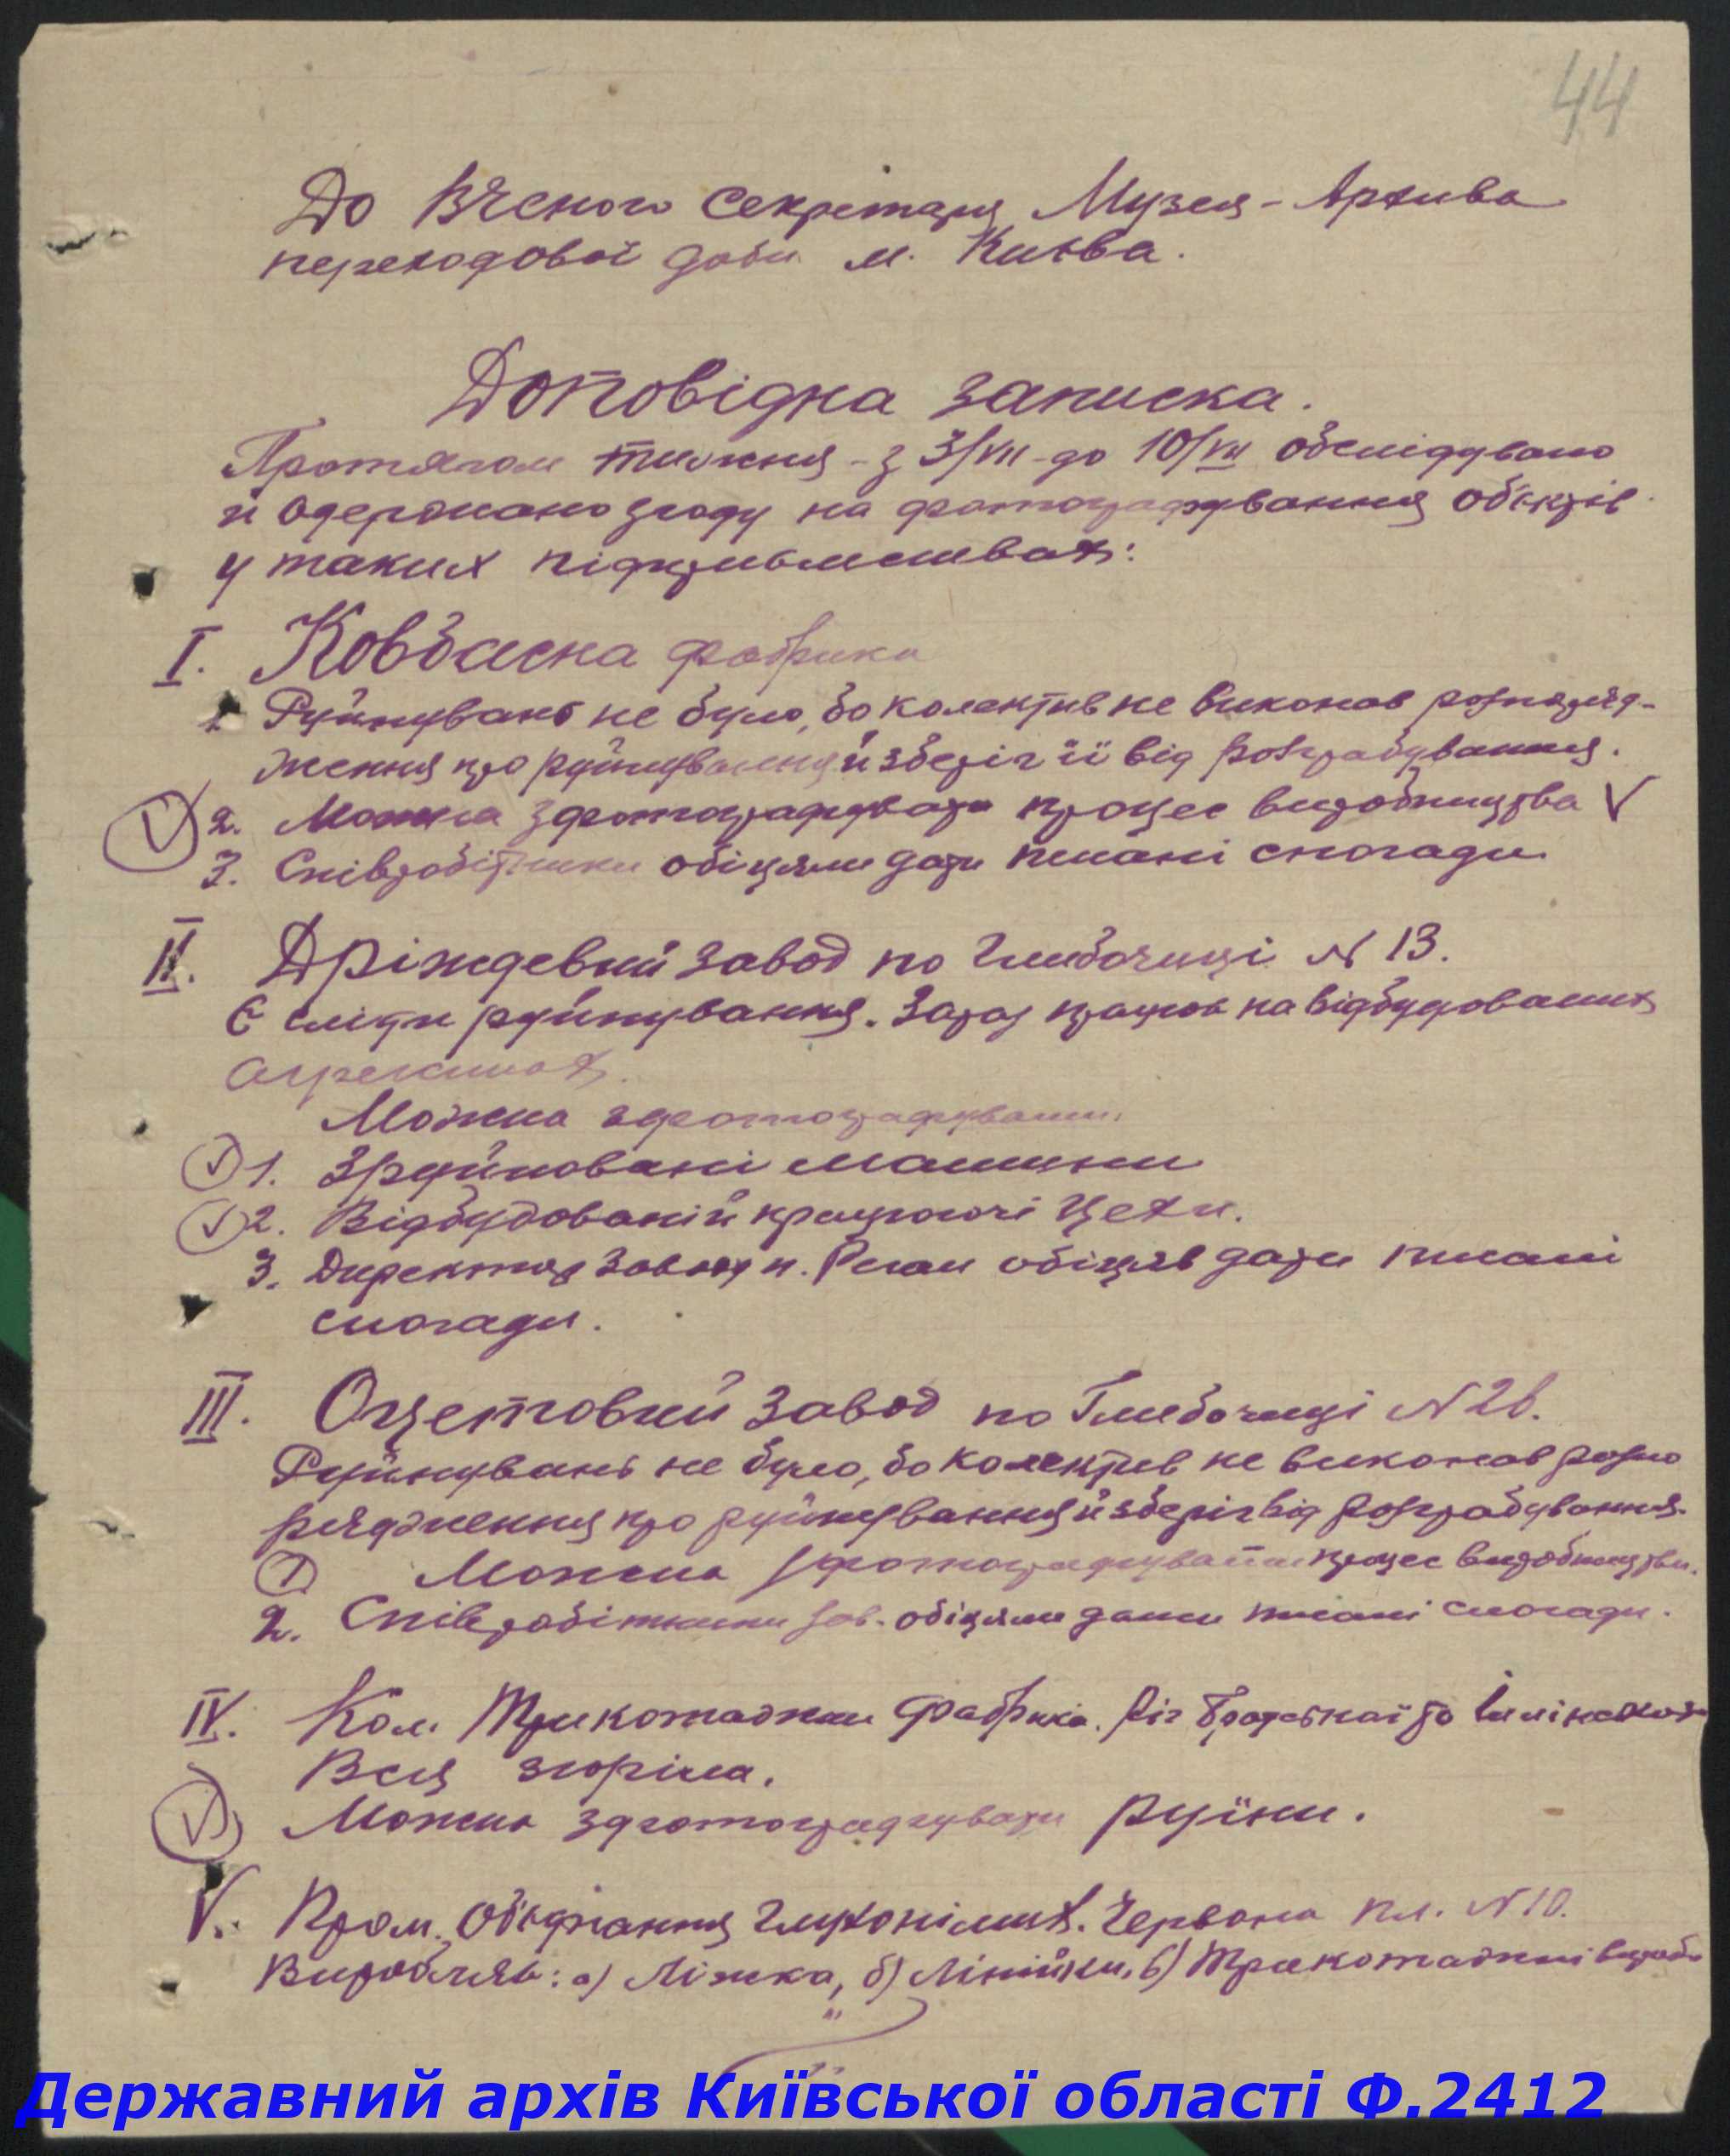 44
До Вченого Секретаря Музея-Архива
переходової доби м. Києва.
Доповідна записка.
Протягом тижня - з 3/VII - до 10/VII обслідувано
й одержано згоду на фотографування об'єктів
у таких підприємствах:
I. Ковбасна фабрика
1. Руйнувань не було, бо колектив не виконав розпоряд-
ження про руйнування й зберіг її від розграбування.
V 2. Можна зфотографувати процес виробництва V
3. Співробітники обіцяли дати писані спогади
II. Дріждевий завод по Глибочиці N 13.
Є сліди руйнування. Зараз працює на відбудованих
агрегатах.
Можна зфотографувати:
V 1. Зруйновані машини
V 2. Відбудовані й працюючі цехи.
3. Директор заводу п. обіцяв дати писані
спогади.
III. Оцетовий завод по Глибочиці N 26.
Руйнувань не було, бо колектив не виконав розпо
рядження про руйнування й зберіг від розграбування.
1 Можна зфотографувати процес виробництва.
2. Співробітники зав. обіцяли дати писані спогади.
IV. Кол. Трикотажна фабрика. Ріг Братської та Іллінської
Вся згоріла.
V Можна зфотографувати руїни.
V. Пром. Об'єднання глухонімих. Червона пл. N 10.
Виробляє: а) Ліжка, б) Лінійки, в) Трикотажні вироби
Державний архів Київської області Ф.2412